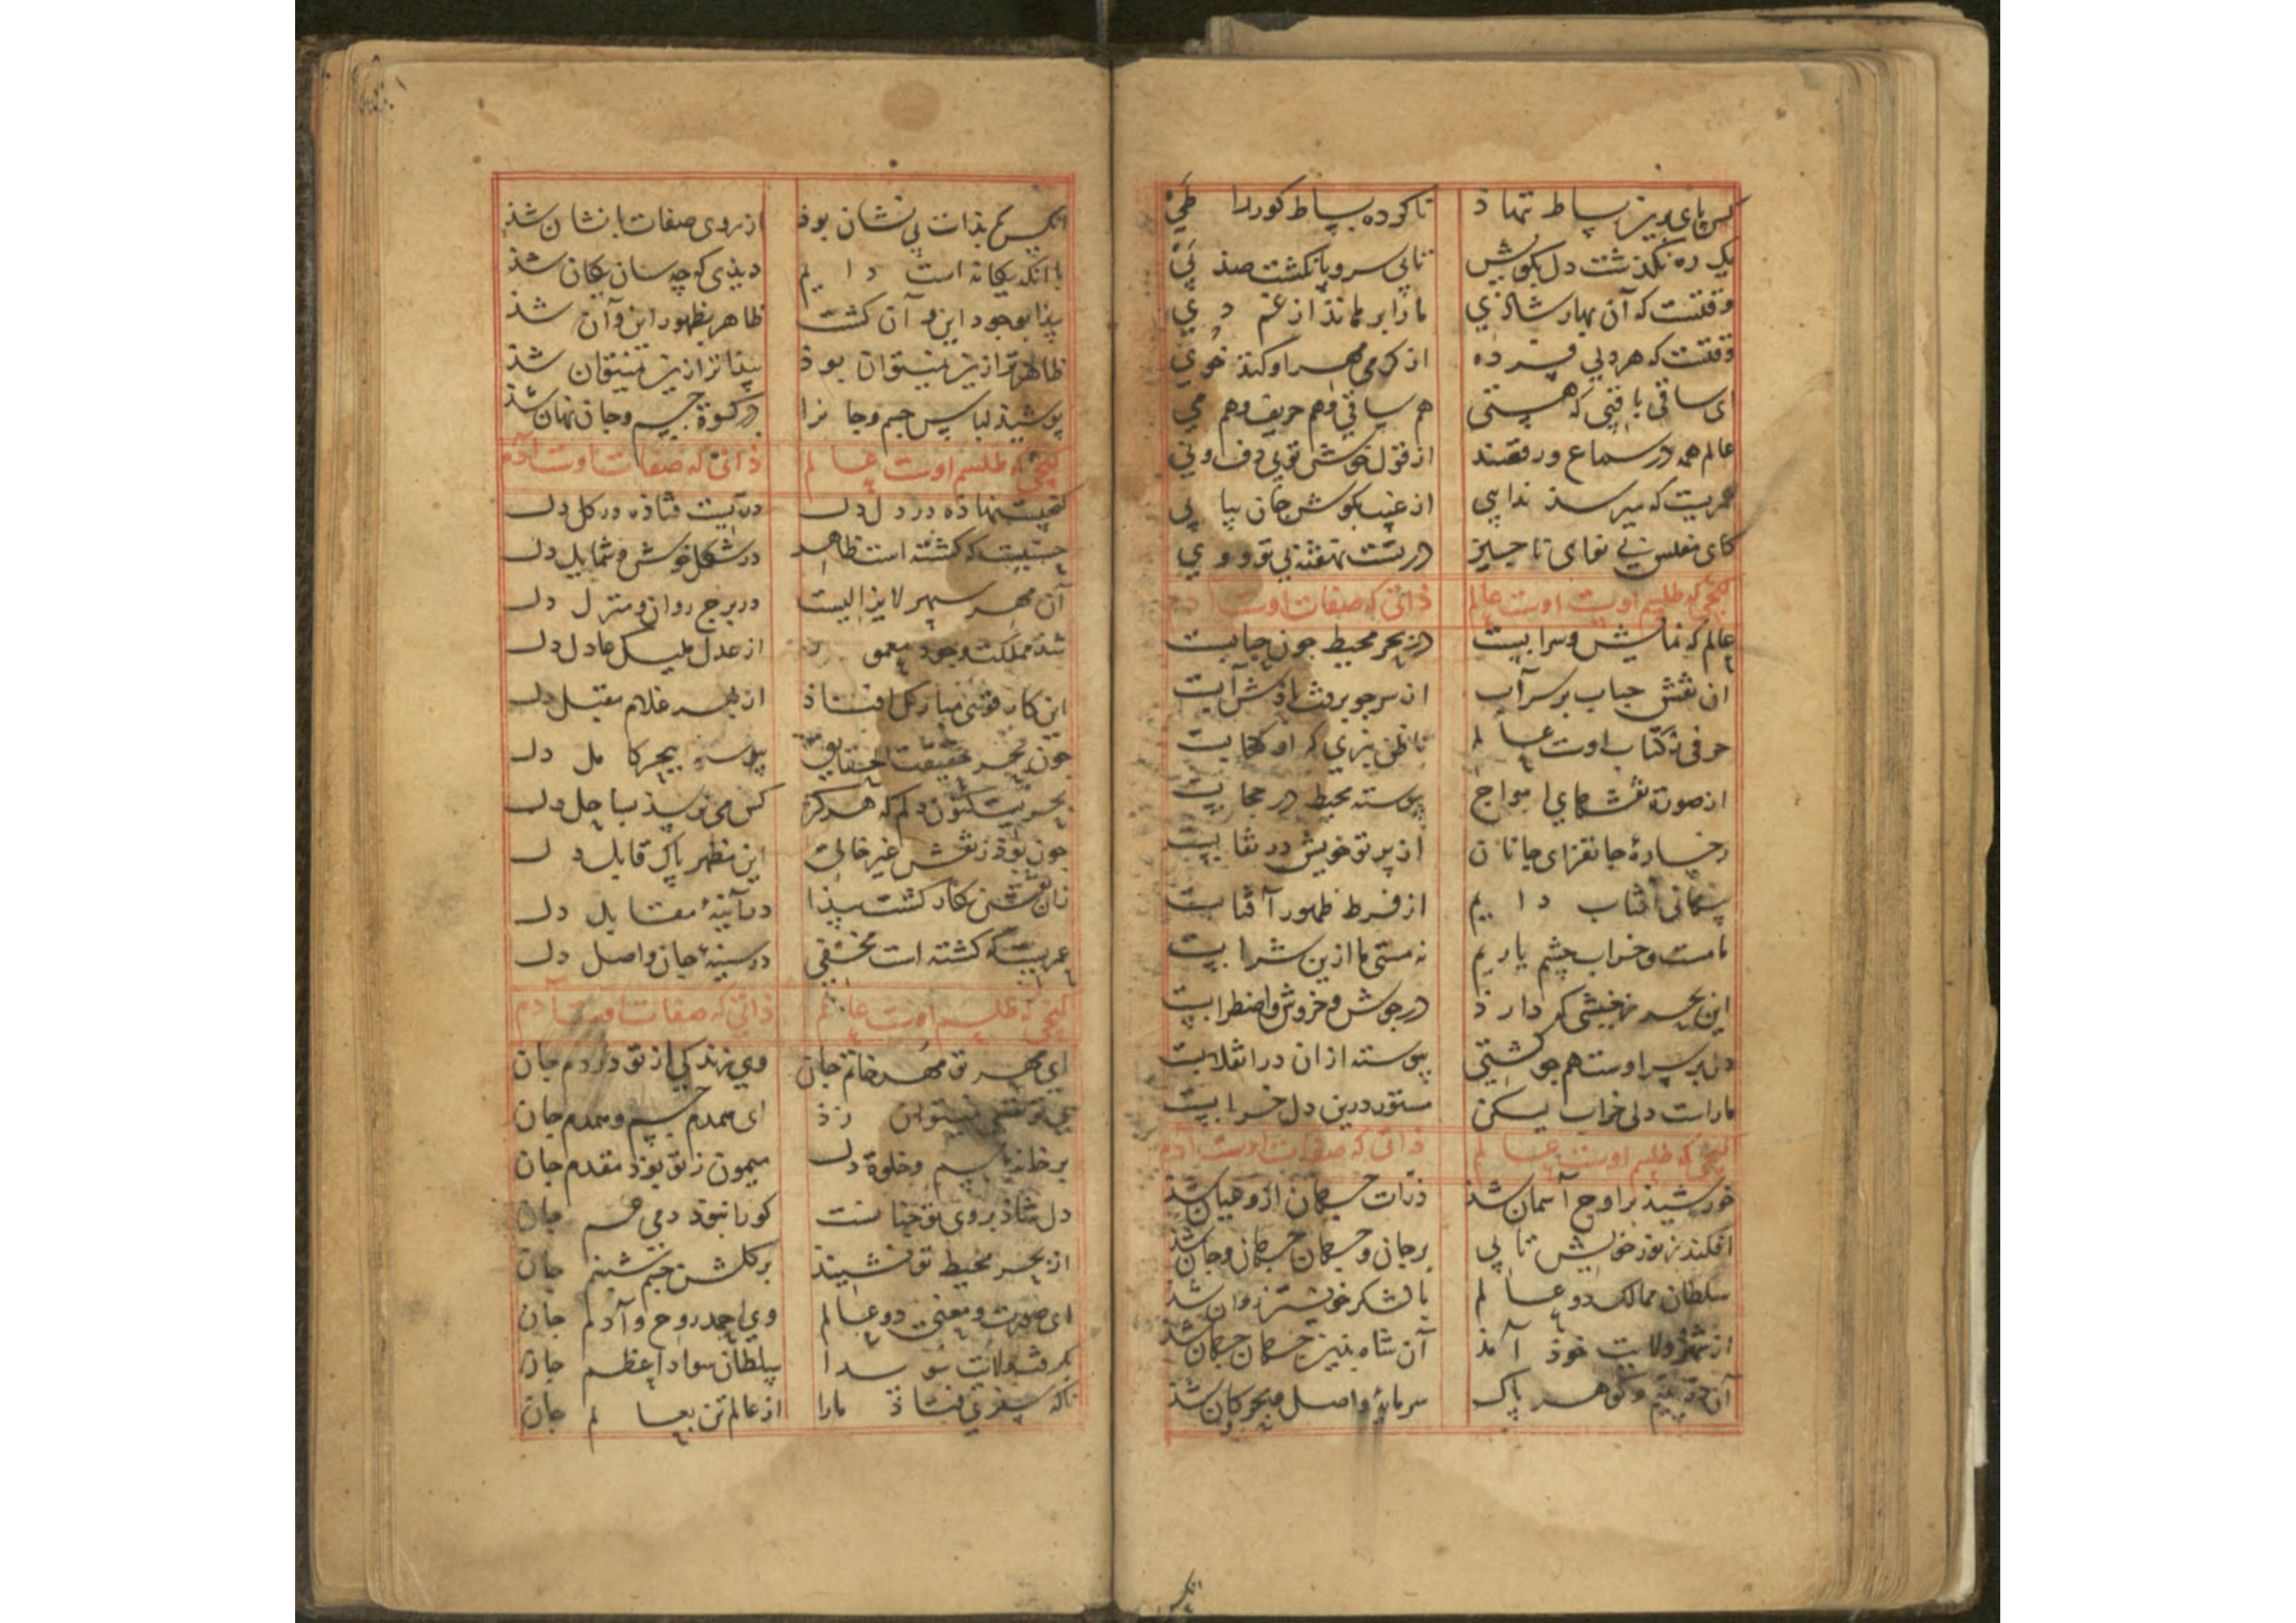 کس پای برین بساط ننهاذ تا کرده بساط کون را طی
یک ره نگذشت دل بکویش تا بی سر و پا نگشت صذ پی
وقتست که آن بهار شاذی ما را برهاند از غم دی
وقتست که هر دلی فسرده از گرمی مهر او کند خوی
ای ساقی باقیی که هستی هم ساقی و هم حریف و هم می
عالم همه در سماع و رقصند از قول خوش تو بی دف و نی
عمریست که میرسد ندایی از غیب بگوش جان پیاپی
کای مفلس بی نوای ناچیز در تست نهفته
گنجی که طلسم اوست اوست عالم ذاتی که صفات اوست آدم
عالم که نمایش و سرابیست در بحر محیط چون حبابیست
ان نقش حباب بر سر آب از سر چو برفت باذش آبست
حرفی ز کتاب اوست عالم تا ظن نبری که او کتابیست
از صورة نقشهای امواج پیوسته محیط در حجابیست
رخسارهٔ جانفزای جانان از پرتو خویش در نقابیست
پنهانی آفتاب دایم از فرط ظهور آفتابست
ما مست و خراب چشم یاریم نه مستی ما ازین شرابیست
این بحر ز جنبشی که دارذ در جوش و خروش و اضطرابیست
دل بر سر اوست همچو کشتی پیوسته ازان در انقلابست
ماراست دلی خراب لیکن مستور درین دل خرابیست
گنجی که طلسم اوست عالم ذاتی که صفات اوست آدم
خورشید بر اوج آسمان شذ ذرات جهان ازو عیان شذ
افکند ز نور خویش تابی بر جان و جهان جهان و جان شذ
سلطان ممالک دو عالم با لشکر خویشتن روان شذ
از شهر ولایت خوذ آمذ آن شاه بذین جهان جهان شذ
آن در یتیم و گوهر پاک سرمایهٔ واصل بحر و کان شذ
انکس
انکس که بذات بی نشان بوذ از روی صفات با نشان شذ
با انکه یگانه است دایم دیذی که چه سان یکان یکان شذ
پیذا بوجود این و آن گشت ظاهر بظهور این و آن شذ
ظاهرتر ازین نمیتوان بوذ پیذاتر ازین نمیتوان شذ
پوشیذ لباس جسم و جانرا در کسوة جسم و جان نهان شذ
گنجی که طلسم اوست عالم ذاتی که صفات اوست آدم
گنجیست نهاذه در دل دل دریست فتاذه در گل دل
حسنیست که گشته است ظاهر در شکل خوش و شمایل دل
آن مهر سپهر لایزالیست در برج روان و منزل دل
شد مملکت وجود معمور از عدل ملیک عادل دل
این کار قوی مبارک افتاذ از بهر غلام مقبل دل
چون بحر حقیقت الحقایق پیوست ببحر کامل دل
بحریست کنون دلم که هرگز کس می نرسذ بساحل دل
چون بوذ ز نقش غیر خالی این مظهر پاک قابل دل
زان نقش نگار گشت پیذا در آینهٔ مقابل دل
عمریست که گشته است مخفی در سینهٔ جان واصل دل
گنجی که طلسم اوست عالم ذاتی که صفات اوست آدم
ای مهر تو مهر خاتم جان وی زندگی از تو در دم جان
بی تو نفسی نمیتوان زذ ای همدم جسم و همدم جان
بر خانهٔ جسم و خلوة دل میمون ز تو بوذ مقدم جان
دل شاذ بروی تو چنانست کورا نبوذ دمی غم جان
از بحر محیط تو نشیند بر گلشن جسم شبنم جان
ای صورت و معنی دو عالم وی احمد روح و آدم جان
بگرفت ولایت سویدا سلطان سواد اعظم جان
ناگه سفری فتاذ مارا از عالم تن بعالم جان